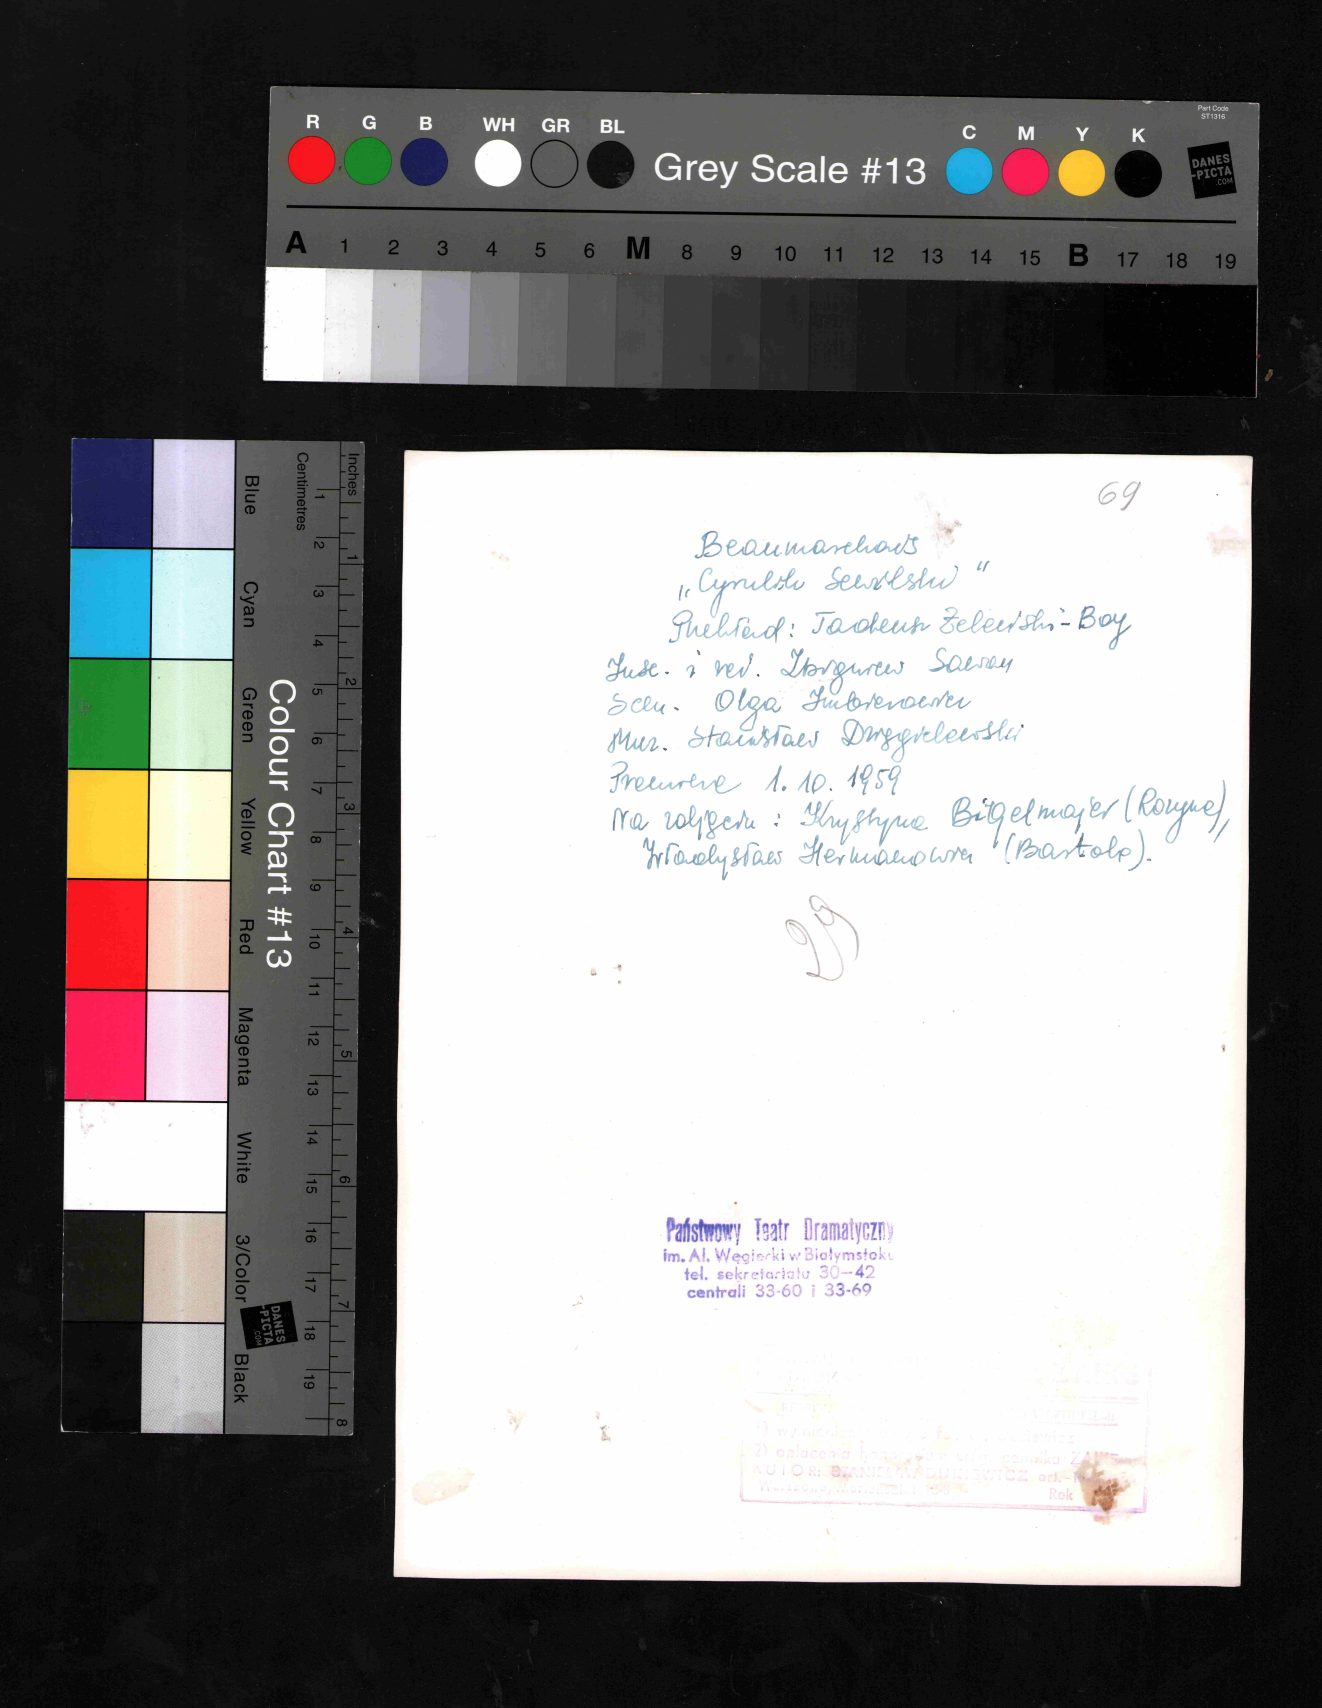 Part Code
ST1316
R G B WH GR BL
Grey Scale #13
C M Y K
DANES
-PICTA
.COM
A 1 2 3 4 5 6 M 8 9 10 11 12 13 14 15 B 17 18 19
Colour Chart #13
Blue Cyan Green Yellow Red Magenta White 3/Color Black
Centimetres
1 2 3 4 5 6 7 8 9 10 11 12 13 14 15 16 17 18 19
Inches
1 2 3 4 5 6 7 8
DANES
-PICTA
.COM
69
Beaumarchais
„Cyrulik Sewilski"
Przekład: Tadeusz Żeleński-Boy
Insc. i reż. Zbigniew Sawan
Scen.  Olga
Muz. Stanisław Dzięgielewski
Premiera 1.10.1959
Na zdjęciu: Krystyna Bigelmajer (Rozyna),
Władysław Hermanowicz (Bartolo).
29
Państwowy Teatr Dramatyczny
im. Al. Węgierki w Białymstoku
tel. sekretariatu 30—42
centrali 33-60 i 33-69
1)
2) opłacenia
AUTOR:
Rok